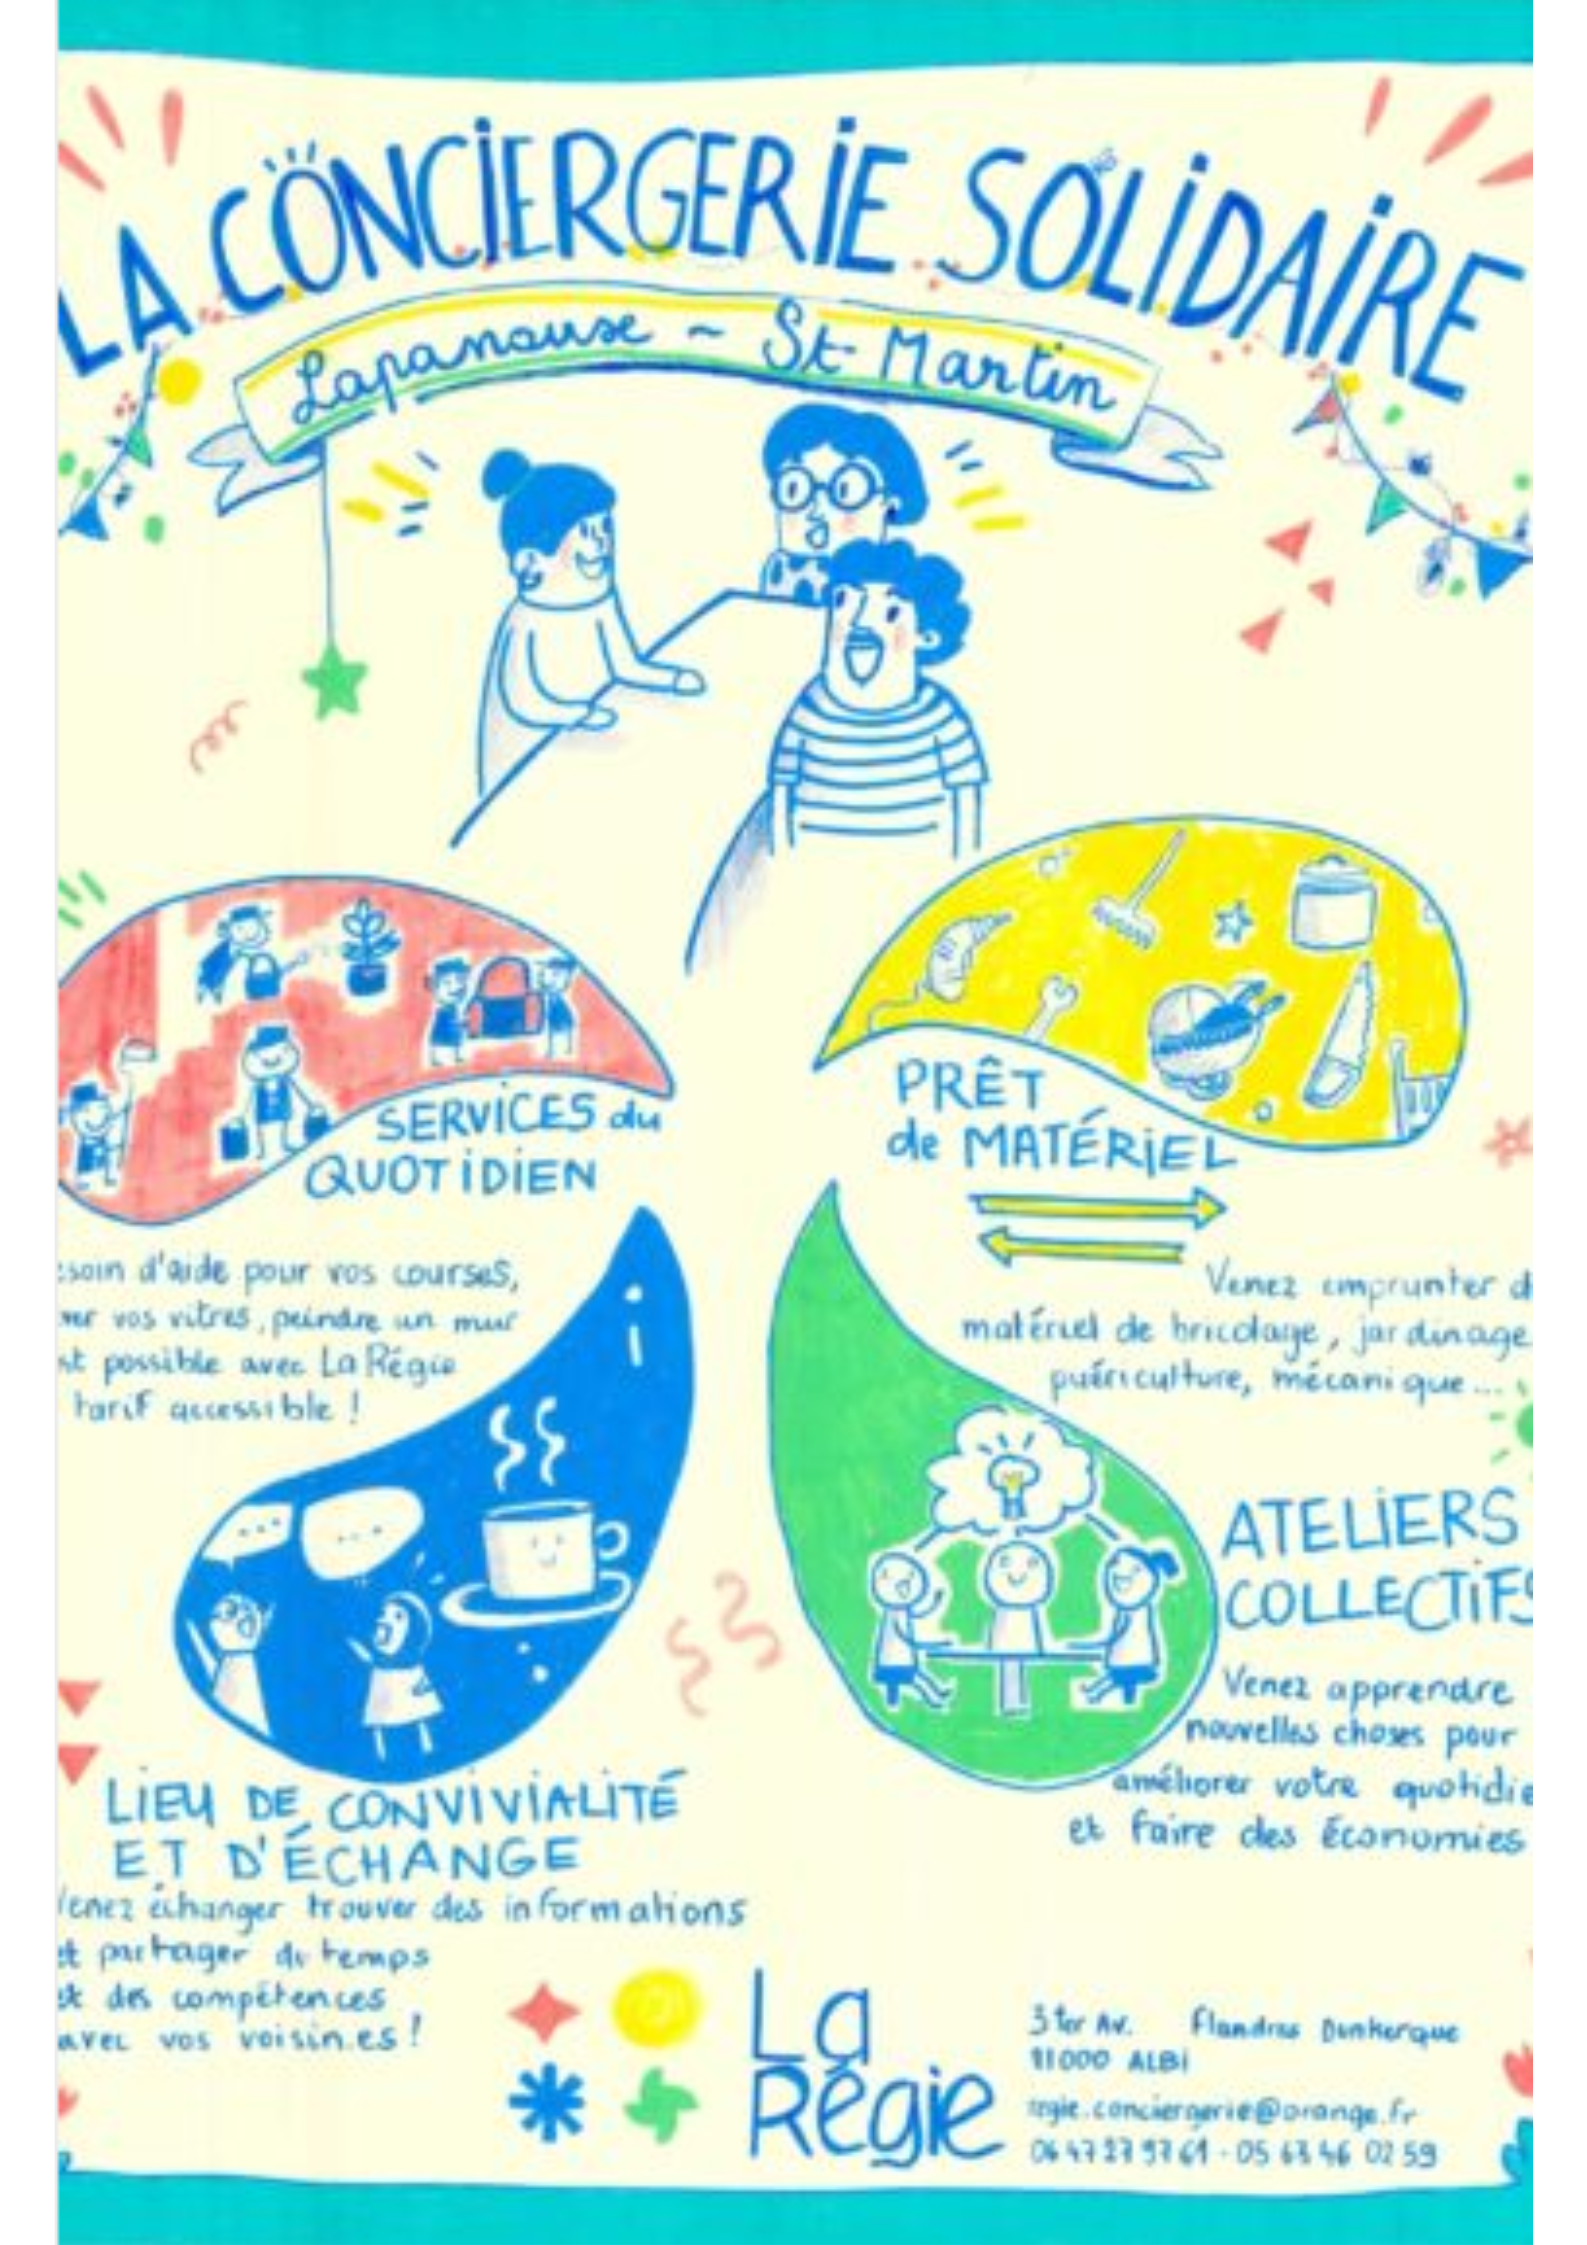 LA CONCIERGERIE SOLIDAIRE
Lapanouse ~ St Martin
SERVICES du
QUOTIDIEN
soin d'aide pour vos courses,
vos vitres, peindre un mur
st possible avec La Régie
tarif accessible !
PRÊT
de MATÉRIEL
Venez emprunter d
matériel de bricolage, jardinage
puériculture, mécanique...
ATELIERS
COLLECTIFS
Venez apprendre
nouvelles choses pour
améliorer votre quotidie
et faire des économies
LIEU DE CONVIVIALITÉ
ET D'ÉCHANGE
Venez échanger trouver des informations
et partager du temps
et des compétences
avec vos voisin.es !
La
Régie
3 ter Av. Flandres Dunkerque
81000 ALBI
regie.conciergerie@orange.fr
05 63 46 02 59